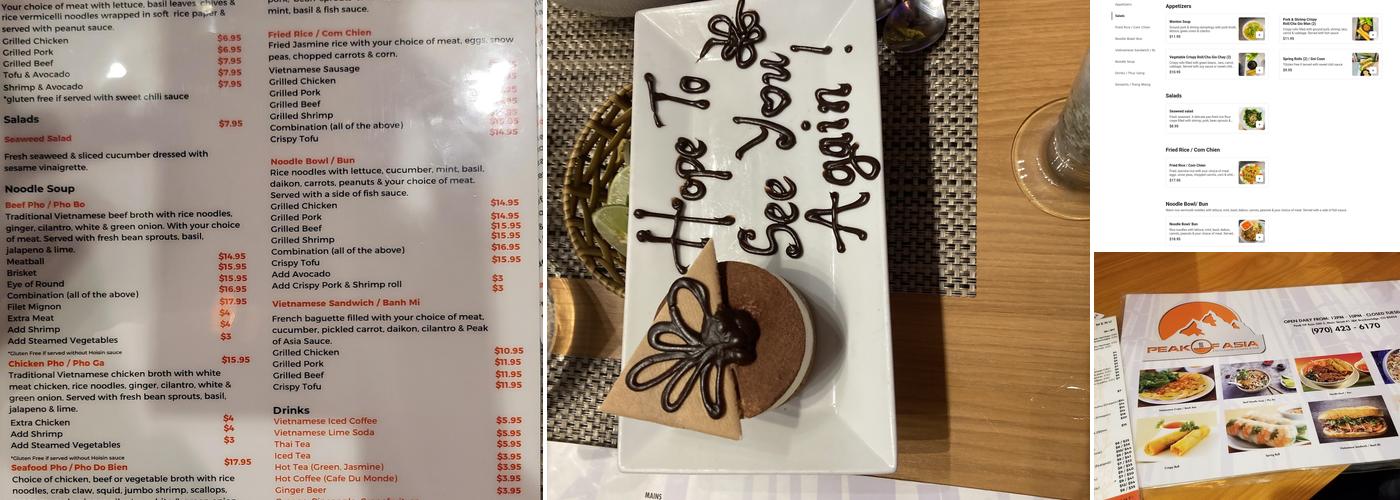 Your choice of meat with lettuce, basil leaves chives &
rice vermicelli noodles wrapped in soft rice paper &
served with peanut sauce.
Grilled Chicken $6.95
Grilled Pork $6.95
Grilled Beef $7.95
Tofu & Avocado $7.95
Shrimp & Avocado $7.95
*gluten free if served with sweet chili sauce
Salads
Seaweed Salad $7.95
Fresh seaweed & sliced cucumber dressed with
sesame vinaigrette.
Noodle Soup
Beef Pho / Pho Bo
Traditional Vietnamese beef broth with rice noodles,
ginger, cilantro, white & green onion. With your choice
of meat. Served with fresh bean sprouts, basil,
jalapeno & lime.
Meatball $14.95
Brisket $15.95
Eye of Round $15.95
Combination (all of the above) $16.95
Filet Mignon $17.95
Extra Meat $4
Add Shrimp $4
Add Steamed Vegetables $3
*Gluten Free if served without Hoisin sauce
Chicken Pho / Pho Ga $15.95
Traditional Vietnamese chicken broth with white
meat chicken, rice noodles, ginger, cilantro, white &
green onion. Served with fresh bean sprouts, basil,
jalapeno & lime.
Extra Chicken $4
Add Shrimp $4
Add Steamed Vegetables $3
*Gluten Free if served without Hoisin sauce
Seafood Pho / Pho Do Bien $17.95
Choice of chicken, beef or vegetable broth with rice
noodles, crab claw, squid, jumbo shrimp, scallops,
mint, basil & fish sauce.
Fried Rice / Com Chien
Fried Jasmine rice with your choice of meat, eggs, snow
peas, chopped carrots & corn.
Vietnamese Sausage
Grilled Chicken
Grilled Pork
Grilled Beef
Grilled Shrimp
Combination (all of the above)
Crispy Tofu $14.95
Noodle Bowl / Bun
Rice noodles with lettuce, cucumber, mint, basil,
daikon, carrots, peanuts & your choice of meat.
Served with a side of fish sauce.
Grilled Chicken $14.95
Grilled Pork $14.95
Grilled Beef $15.95
Grilled Shrimp $15.95
Combination (all of the above) $16.95
Crispy Tofu $15.95
Add Avocado $3
Add Crispy Pork & Shrimp roll $3
Vietnamese Sandwich / Banh Mi
French baguette filled with your choice of meat,
cucumber, pickled carrot, daikon, cilantro & Peak
of Asia Sauce.
Grilled Chicken $10.95
Grilled Pork $11.95
Grilled Beef $11.95
Crispy Tofu $11.95
Drinks
Vietnamese Iced Coffee $5.95
Vietnamese Lime Soda $5.95
Thai Tea $5.95
Iced Tea $3.95
Hot Tea (Green, Jasmine) $3.95
Hot Coffee (Cafe Du Monde) $3.95
Ginger Beer $3.95
Hope To
See You!
Again.
MAINS
Appetizers
Salads
Fried Rice / Com Chien
Noodle Bowl/ Bun
Noodle Soup
Appetizers
Wonton Soup
$11.95
Pork & Shrimp Crispy
Roll/Cha Gio Man (2)
$11.95
Vegetable Crispy Roll/Cha Gio Chay (2)
$10.95
Spring Rolls (2) / Goi Cuon
$9.95
Salads
Seaweed salad
$8.95
Fried Rice / Com Chien
Fried Rice / Com Chien
$17.95
Noodle Bowl/ Bun
Noodle Bowl/ Bun
$18.95
OPEN DAILY FROM: 12PM - 10PM - CLOSED TUESD
(970) 423 - 6170
PEAK OF ASIA
Crispy Roll
Spring Roll